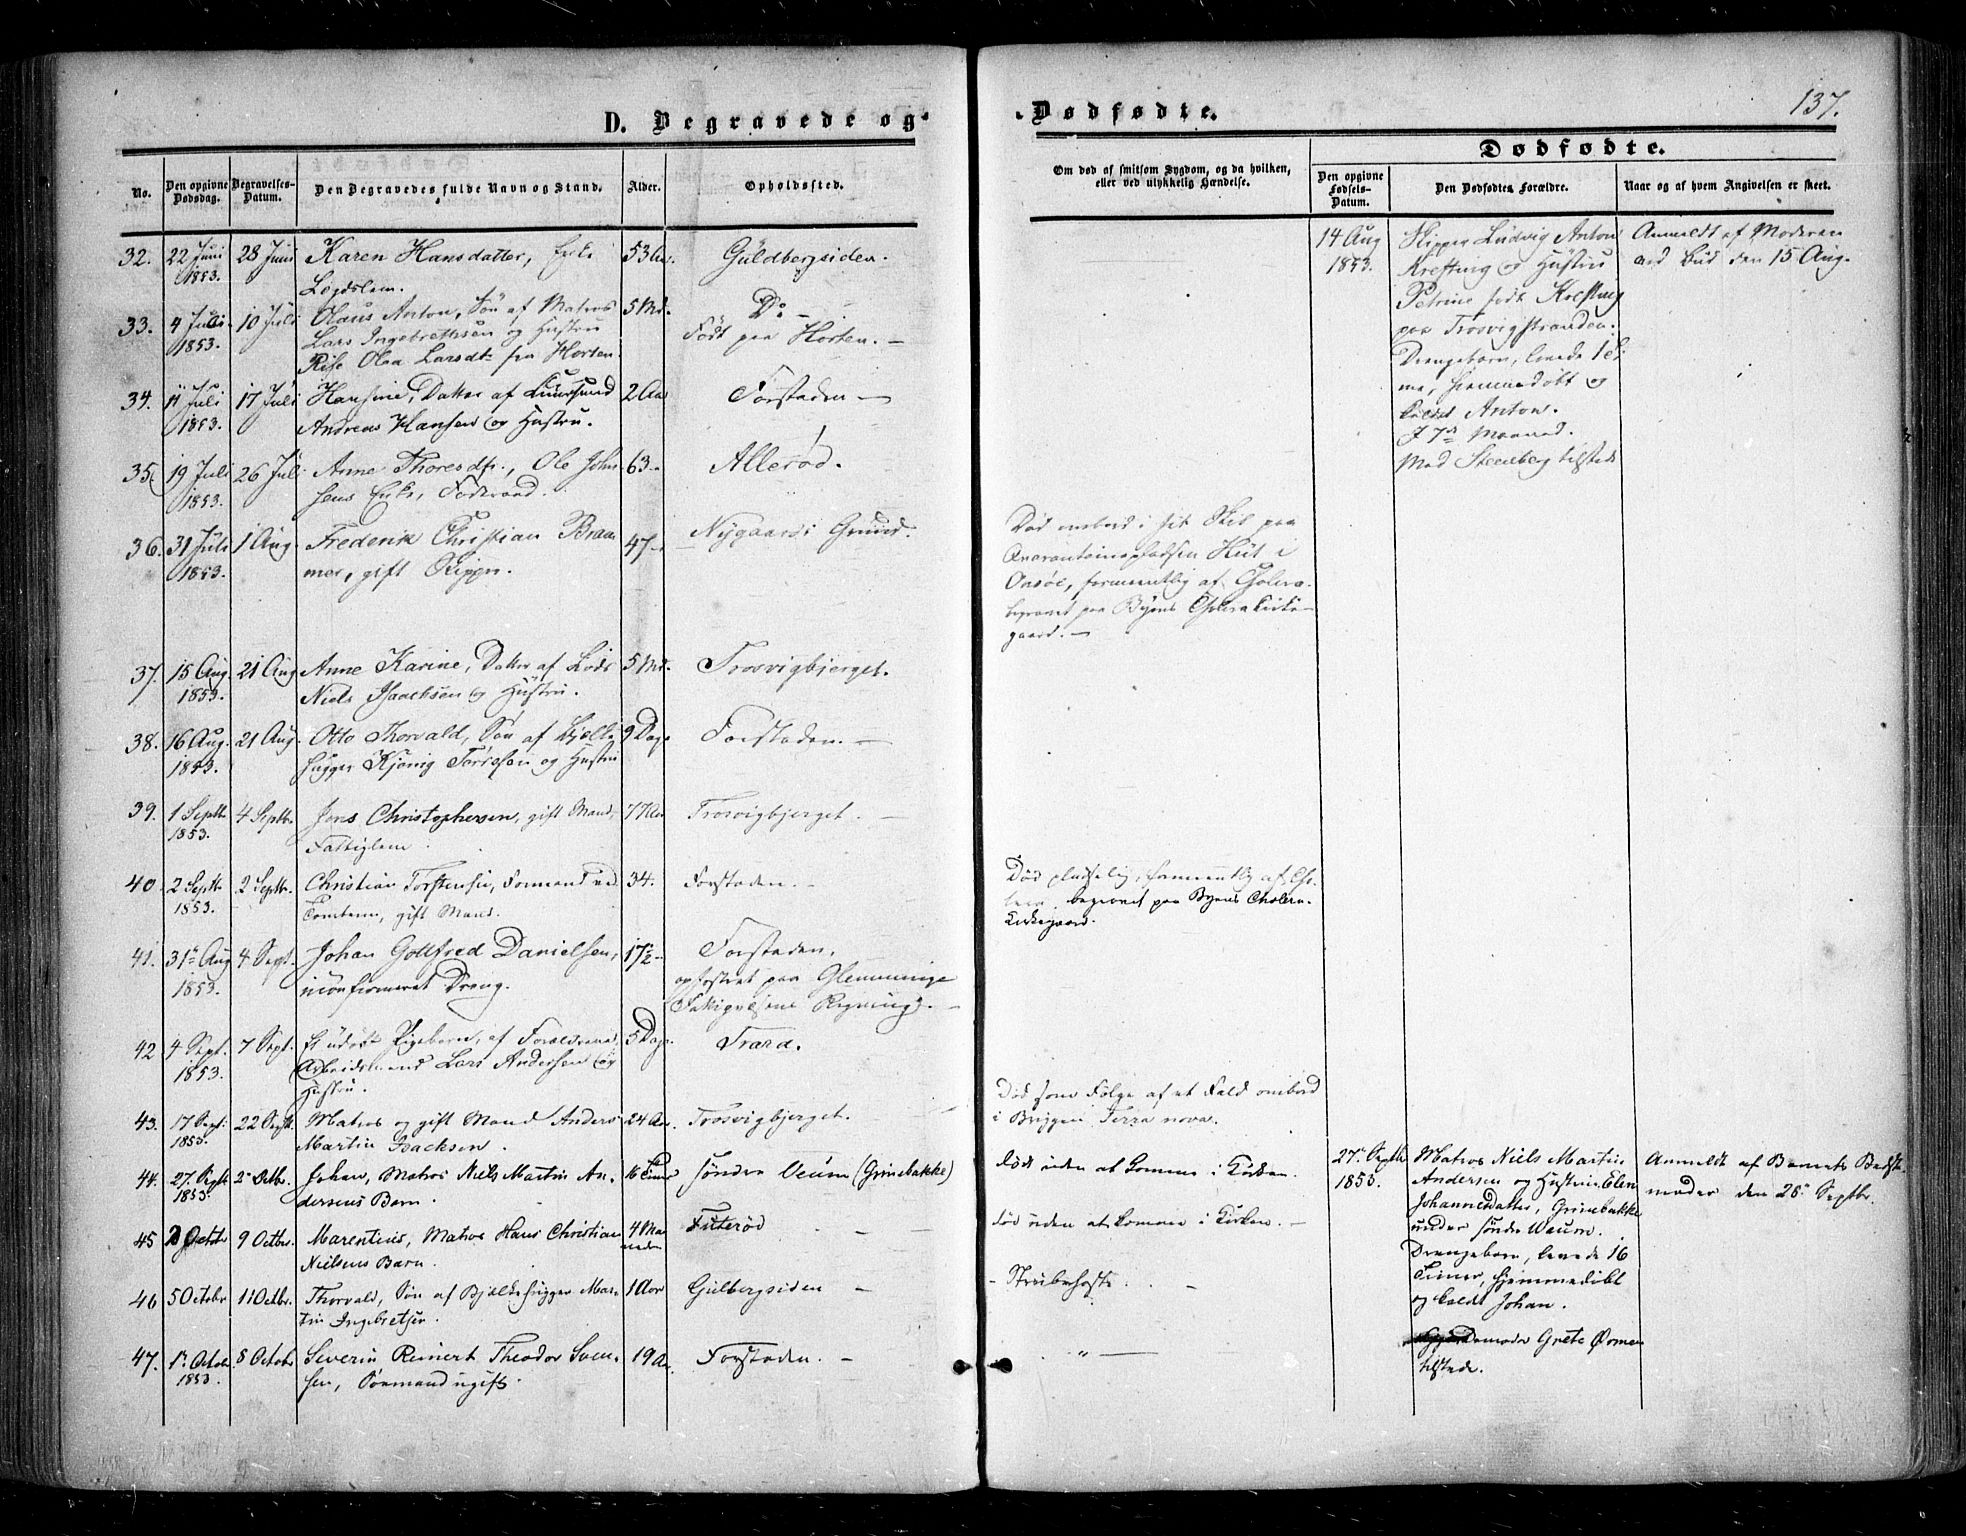 D. Begravede og
Dødfødte.
137.
No.
Den opgivne Dødsdag.
Begravelses-Datum.
Den Begravedes fulde Navn og Stand.
Alder.
Opholdssted.
Om død af smitsom Sygdom, og da hvilken,
eller ved ulykkelig Hændelse.
Dødfødte.
Den opgivne Fødsels-Datum.
Den Dødfødtes Forældre.
Naar og af hvem Angivelsen er skeet.
32. 22 Juni 28 Juni Karen Hansdatter, Enke 53 Aar. Guldbergsiden.
1853. Lægdslem.
33. 4 Juli 10 Juli Olaus Anton, Søn af Matros 5 Md. Do –
1853. Lars Ingebrethsen og Hustru Født paa Horten. –
Olea Larsdt. fra Horten.
34. 11 Juli 17 Juli Hansine, Datter af 2 Aar Forstaden –
1853. Andreas Hansen og Hustru.
35. 19 Juli 26 Juli Anne Thoresdtr., Ole John- 63 – Allerød.
1853. sens Enke, Føderaad.
36. 31 Juli 1 Aug. Frederik Christian Bram- 47 – Nygaards Grund.
1853. mer, gift Skipper.
37. 15 Aug. 21 Aug Anne Karine, Datter af Lods 5 Md. Trosvigbjerget.
1853. Niels Isaachsen og Hustru.
38. 16 Aug. 21 Aug. Otto Thorvald, Søn af Bjælke- 9 Dage Forstaden. –
1853. hugger Tørresen og Hustru
39. 1 Septb. 4 Septb. Jens Christophersen, gift Mand, 77 Aar Trosvigbjerget. –
1853. Fattiglem.
40. 2 Septb. 2 Septb. Christian Torstensen, Formand ved 34. Forstaden. –
1853. Tomten, gift Mand.
41. 31te Aug 4 Sept. Johan Gottfred Danielsen, 17½ – Forstaden,
1853. uconfirmeret Dreng. opfostret paa Glemminge
Fattigvæsens Regning. –
42 4 Sept. 7 Sept. Et udøbt Pigebarn, af Forældrene 5 Dage Trara.
1853. Arbeidsmand Lars Andersen og
Hustru.
43. 17 Sept. 22 Septb. Matros og gift Mand Anders 24 Aar Trosvigbjerget.
1853. Martin Isacksen.
44. 27. Septb 2 Octbr. Johan, Matros Niels Martin An- 16 Timer søndre Veum (Grinebakke)
1853. dersens Barn.
45 Octbr 9 Octbr. Marentius, Matros Hans Christian 4 Maa- Futerød
Nielsens Barn. neder
46 5 Octobr 11 Octbr. Thorvald, Søn af Bjælkehugger Mar- 1 Aar Gulbergsiden –
tin Ingebretsen
47. 1ste Octob 8 Octobr Severin Reinert Theodor Sven- 19 Aar. Forstaden. –
1853. sen, Sømand ugift.
Død ombord i sit Skib paa
Quarantainepladsen Hüt i
Onsøe, formeentlig af Cholera.
begravet paa Byens Cholerakirke-
gaard. –
Død pludselig, formeentlig af Cho-
lera, begravet paa Byens Cholera-
Kirkegaard.
Død som Følge af et Fald ombord
i Briggen Terra nova.
død uden at komme i Kirken.
død uden at komme i Kirken. –
– Strubehoste. –
" –
14 Aug 1853.
Skipper Ludvig Anton
Krefting og Hustru
Petrine født Krefting
paa Trosvigstranden.
Drengebarn, levede 1 Ti-
me, hjemmedøbt og
kaldet Anton.
I 7de Maaned.
Mad Steenberg tilstede
Anmeldt af Moderen
ved Bud den 15 Aug.
27de Septbr 1853.
Matros Niels Martin
Andersen og Hustrue Elen
Johannesdatter, Grinebakke
under søndre Waum.
Drengebarn, levede 16
Timer, hjemmedøbt
og kaldt Johan.
Jordemoder Grete
tilstede.
Anmeldt af Barnets Bedste-
moder den 28de Septbr.